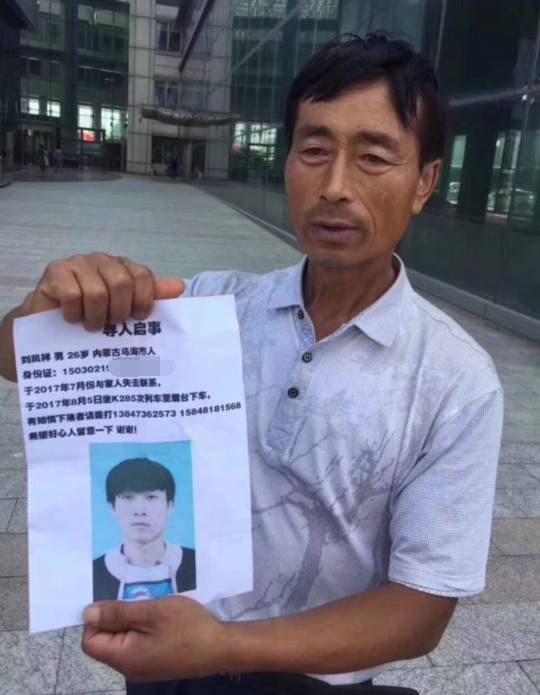 寻人启事
刘凤祥 男 26岁 内蒙古乌海市人
身份证：15030219
于2017年7月份与家人失去联系，
于2017年8月5日坐K285次列车至烟台下车，
有知情下落者请拨打13847362573 15848181568
希望好心人留意一下 谢谢！